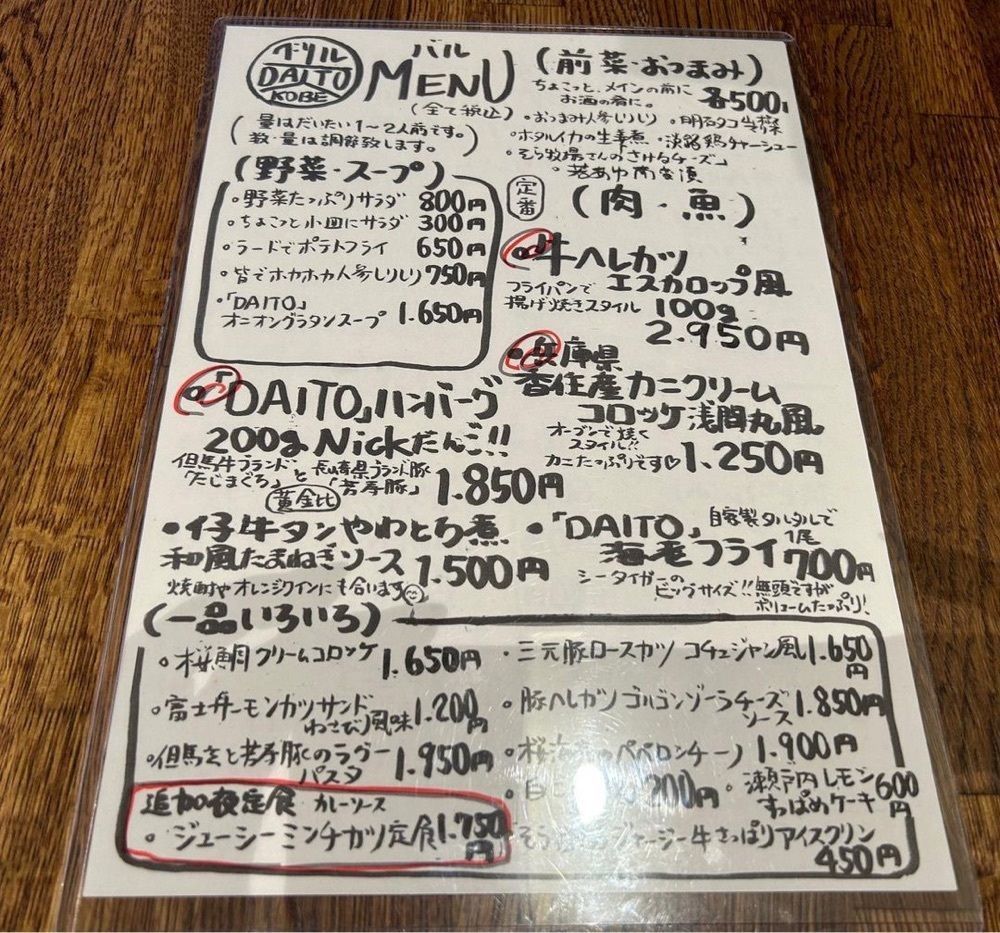 グリル
DAITO
KOBE
バル
MENU
(全て税込)
(量はだいたい1〜2人前です。
数・量は調節致します。)
(野菜・スープ)
・野菜たっぷりサラダ 800円
・ちょこっと小皿にサラダ 300円
・ラードでポテトフライ 650円
・皆でホカホカ人参しりしり 750円
・「DAITO」
オニオングラタンスープ 1.650円
(前菜・おつまみ)
ちょこっと、メインの前に
お酒の肴に。
各500
・おつまみ人参しりしり ・明石タコ
・ホタルイカの生姜煮 ・淡路鶏チャーシュー
・そら牧場さんのさけるチーズ
・若あゆ南蛮漬
定番
(肉・魚)
・牛ヘレカツ
エスカロップ風
フライパンで
揚げ焼きスタイル
100g
2.950円
・兵庫県
香住産カニクリーム
コロッケ浅間丸風
オーブンで焼く
スタイル!!
カニたっぷりです♡ 1.250円
・「DAITO」ハンバーグ
200g Nickだんご!!
但馬牛ブランド
「たじまぐろ」と
長崎県ブランド豚
「芳寿豚」
黄金比
1.850円
・仔牛タンやわとろ煮
和風たまねぎソース 1.500円
焼酎やオレンジワインにも合います
・「DAITO」
海老フライ
自家製タルタルで
1尾
700円
シータイガーの
ビッグサイズ!!
無頭ですが
ボリュームたっぷり!
(一品いろいろ)
・桜鯛クリームコロッケ 1.650円
・富士サーモンカツサンド
わさび風味 1.200円
・但馬玄と芳寿豚のラグー
パスタ 1.950円
追加夜定食 カレーソース
・ジューシーミンチカツ定食 1.750円
・三元豚ロースカツ コチュジャン風 1.650円
・豚ヘレカツゴルゴンゾーラチーズ
ソース 1.850円
・桜 のペペロンチーノ 1.900円
200円
・瀬戸内レモン
すっぱめケーキ 600円
ジャージー牛さっぱりアイスクリン
450円